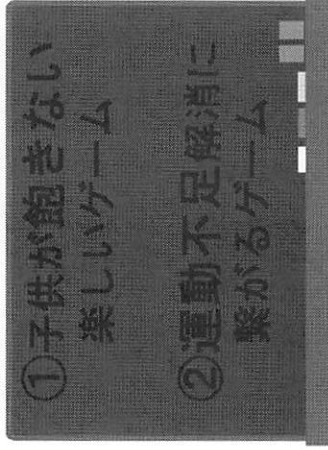 ①子供が飽きない
楽しいゲーム
②運動不足解消に
繋がるゲーム